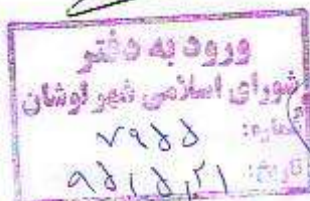 ورود به دفتر
شورای اسلامی شهر لوشان
شماره: ۷۹۵۵
تاریخ: ۹۵/۵/۲۱